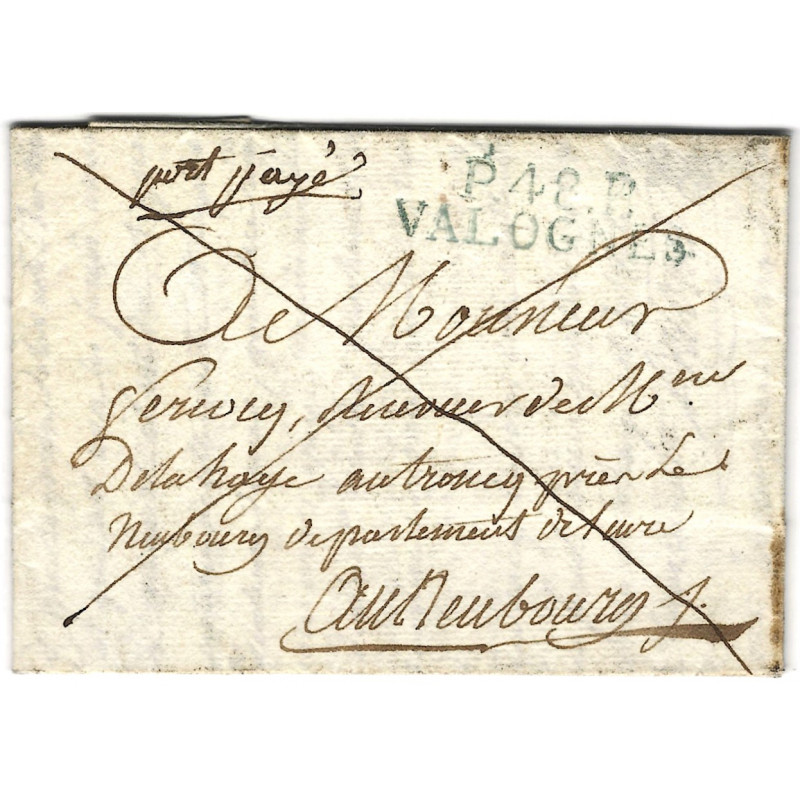 port payé
P.48.P.
VALOGNES
De Monsieur
Receveur de Mme
Delahaye au troncq près Le
Neubourg departement de Leure
Au Neubourg